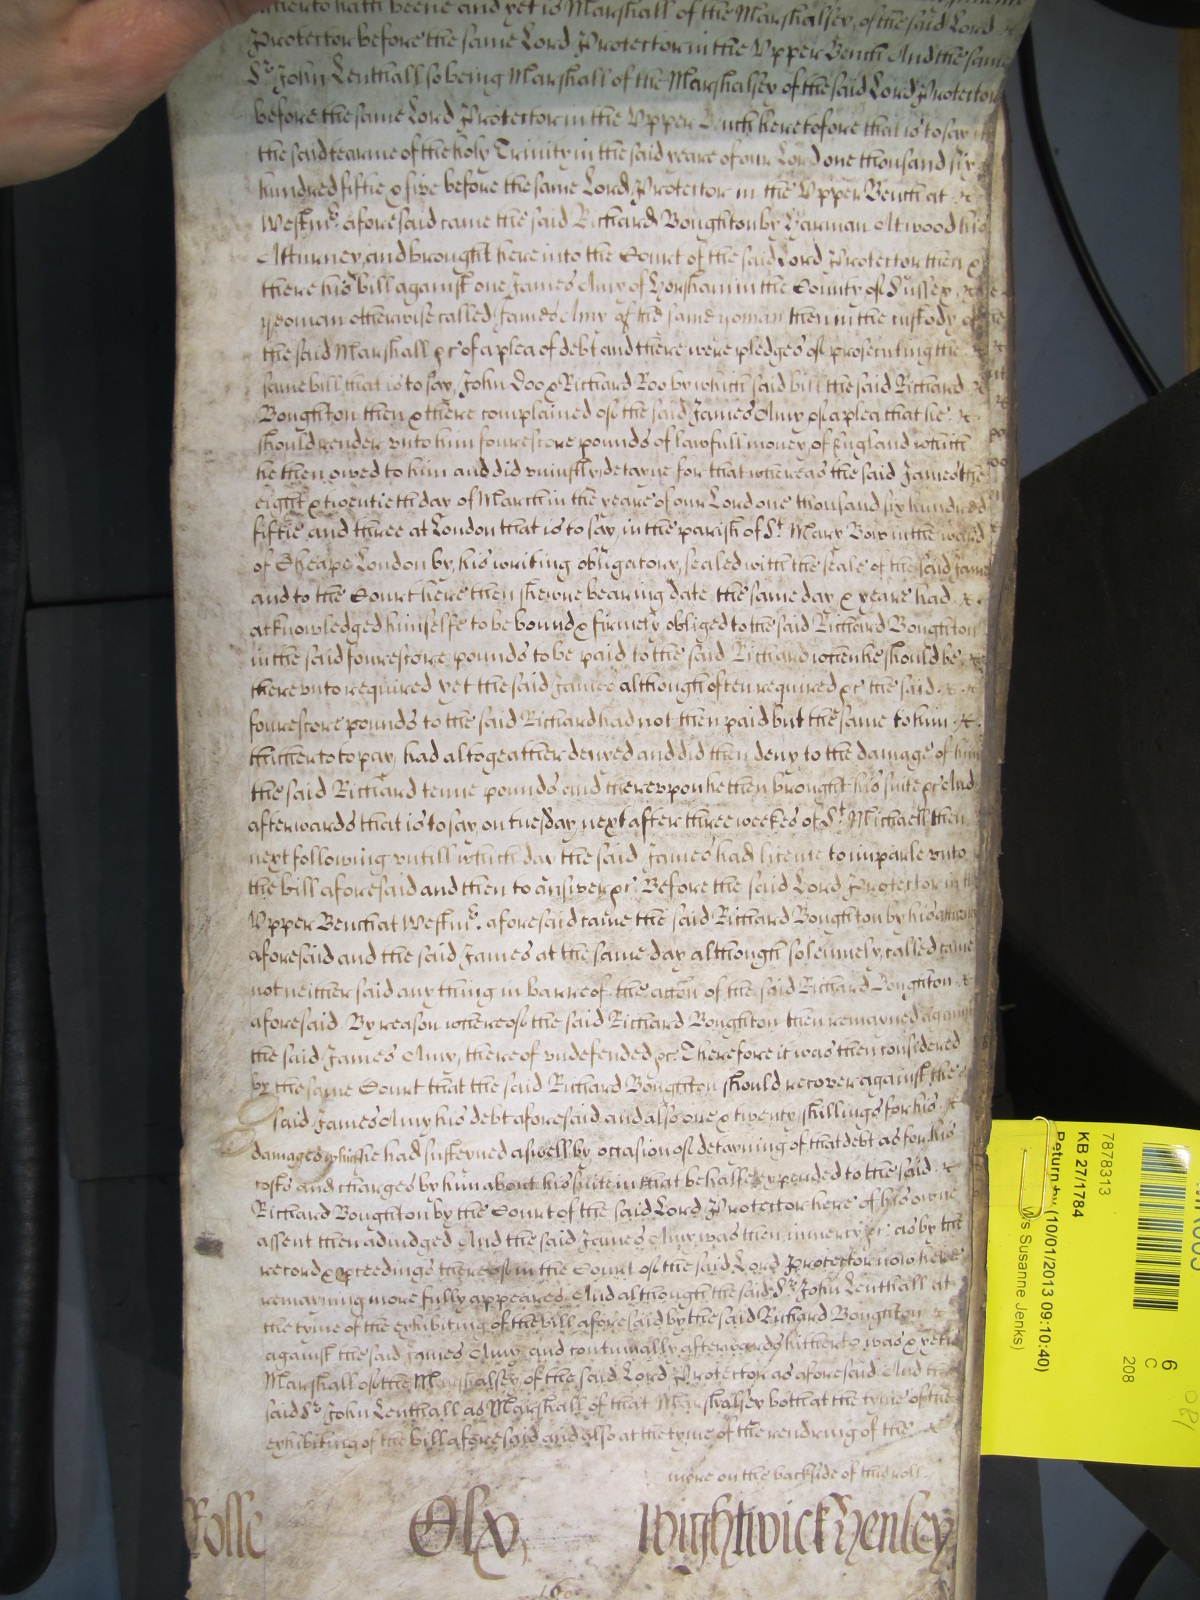 hitherto hath beene and yet is Marshall of the Marshalsey of the said Lord
Protector before the same Lord Protector in the Vpper Bench And the same
Sr. John Lenthall so being Marshall of the Marshalsey of the said Lord Protector
before the same Lord Protector in the Vpper Bench heretofore that is to say in
the said tearme of the holy Trinity in the said yeare of our Lord one thousand six
hundred fiftie & five before the same Lord Protector in the Vpper Bench at
Westmr. aforesaid came the said Richard Boughton by Harman Atwood his
Atturney and brought here into the Court of the said Lord Protector then &
there his bill against one James Amy of Horsham in the County of Sussex
yeoman otherwise called James Amy of the same yoman then in the custody of
the said Marshall &c of a plea of debt and there were pledges of prosecuting the
same bill that is to say John Doo & Richard Roo by which said bill the said Richard
Boughton then & there complained of the said James Amy of a plea that he
should render vnto him fourescore pounds of lawfull money of England which
he then owed to him and did vniustly detayne for that whereas the said James the
eight & twentieth day of March in the yeare of our Lord one thousand six hundred
fiftie and three at London that is to say in the parish of St. Mary Bow in the ward
of Cheape London by his writing obligatory sealed with the seale of the said James
and to the Court here then shewne bearing date the same day & yeare had
acknowledged himselfe to be bound & firmely obliged to the said Richard Boughton
in the said fourescore pounds to be paid to the said Richard when he should be
therevnto required yet the said James although often required &c the said
fourescore pounds to the said Richard had not then paid but the same to him
thitherto to pay had altogeather denyed and did then deny to the damage of him
the said Richard tenne pounds and therevpon he then brought his suite &c And
afterwards that is to say on tuesday next after three weekes of St. Michaell then
next following vntill which day the said James had licence to imparle vnto
the bill aforesaid and then to answer &c. Before the said Lord Protector in the
Vpper Bench at Westmr. aforesaid came the said Richard Boughton by his atturney
aforesaid and the said James at the same day although solemnely called came
not neither said any thing in barre of the accon of the said Richard Boughton
aforesaid By reason whereof the said Richard Boughton then remayned against
the said James Amy thereof vndefended &c. Therefore it was then considered
by the same Court that the said Richard Boughton should recover against the
said James Amy his debt aforesaid and also one & twenty shillings for his
damages which he had susteyned aswell by occasion of detayning of that debt as for his
costs and charges by him about his suite in that behalfe expended to the said
Richard Boughton by the Court of the said Lord Protector here of his owne
assent then adiudged And the said James Amy was then in mercy &c as by the
record & proceedings thereof in the Court of the said Lord Protector now here
remayning more fully appeares And although the said Sr. John Lenthall at
the tyme of the exhibiting of the bill aforesaid by the said Richard Boughton
against the said James Amy and continually afterwards hitherto was & yet is
Marshall of the Marshalsey of the said Lord Protector as aforesaid And the
said Sr. John Lenthall as Marshall of that Marshalsey both at the tyme of the
exhibiting of the bill aforesaid and also at the tyme of the rendring of the
more on the backside of this roll
Rolle Olx Wightwick Henley
787813
KB 27/1784
Return by (10/01/2013 09:10:40)
Susanne Jenks)
6
C
208